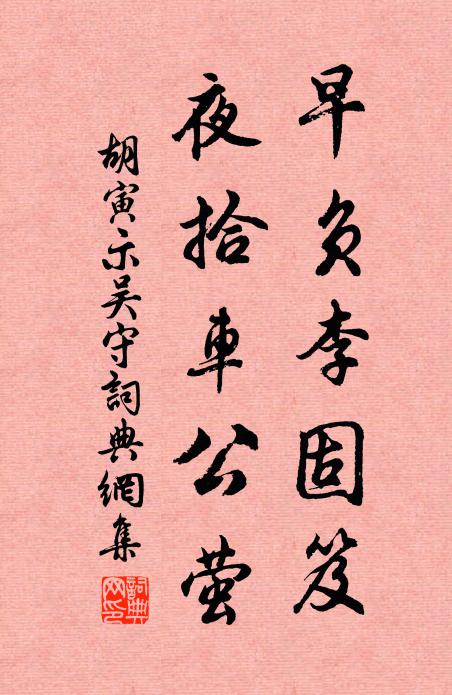 早負李固笈
夜拾車公螢
胡寅示吴守詞典網集
詞典網印